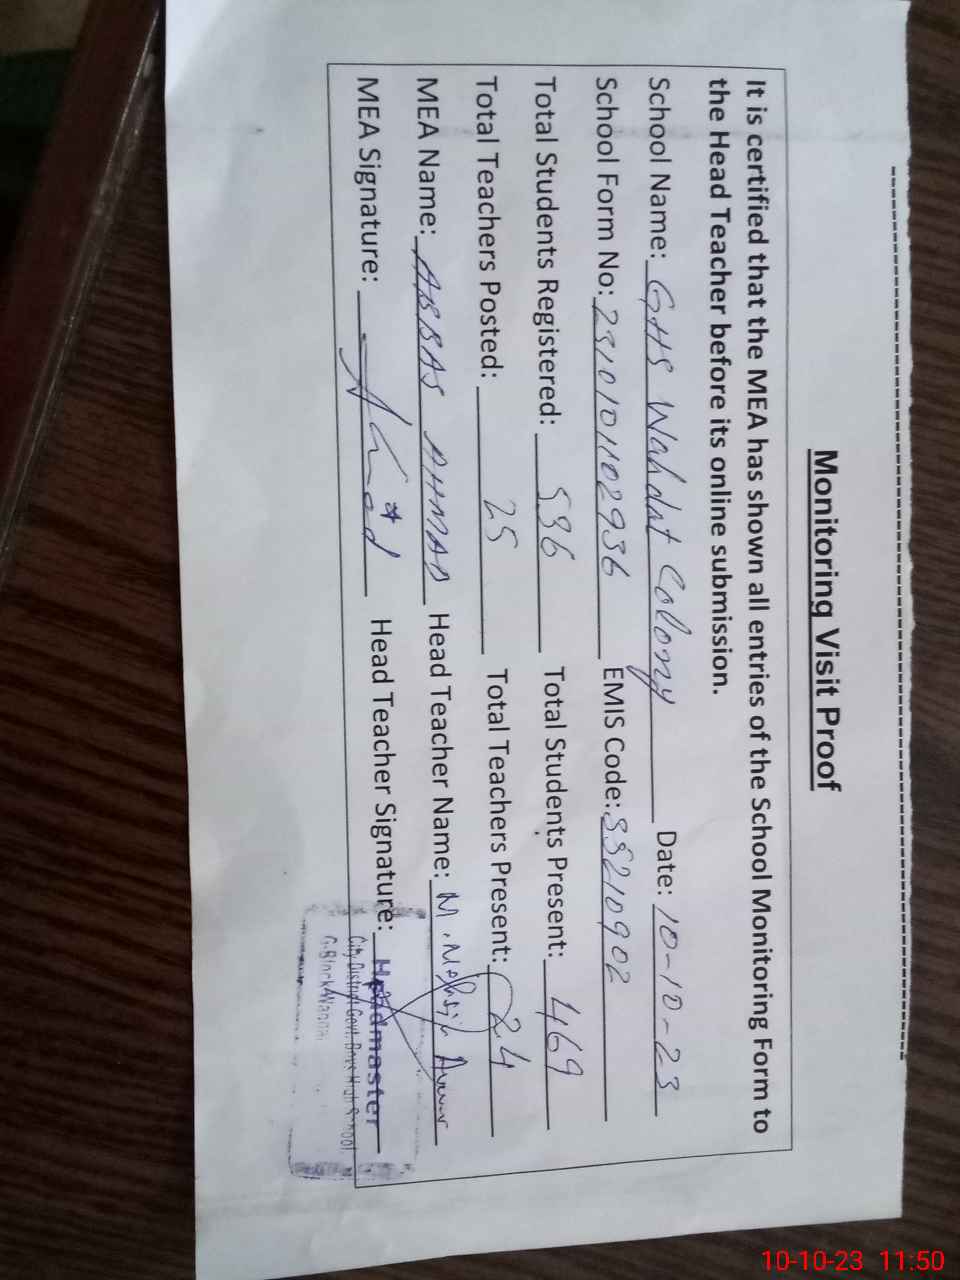 Monitoring Visit Proof
It is certified that the MEA has shown all entries of the School Monitoring Form to
the Head Teacher before its online submission.
School Name: GHS Wahdat Colony Date: 10-10-23
School Form No: 2310101102936 EMIS Code:
Total Students Registered: 596 Total Students Present: 469
Total Teachers Posted: 25 Total Teachers Present: 24
MEA Name: ABBAS AHMAD Head Teacher Name: M.
MEA Signature: Head Teacher Signature:
Headmaster
City District Govt. Boys High School
G-Block
10-10-23 11:50